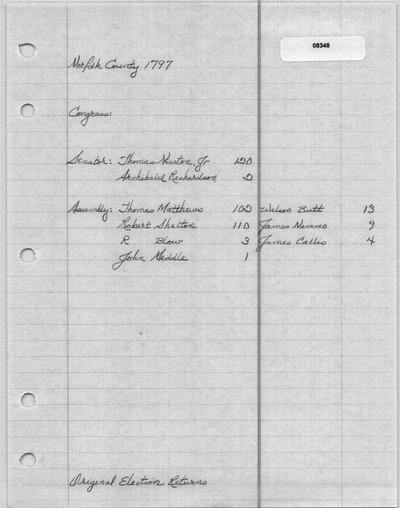 08348
Norfolk County 1797
Congress:
Senator: Thomas Newton, Jr 120
Archibald Richardson 2
Assembly: Thomas Matthews 102 Wilson Butt 13
Robert Shelton 110 James Nimmo 9
R Blow 3 James Callis 4
John Meddle 1
Original Election Returns